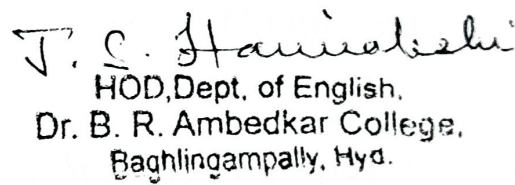 T. S.
HOD,Dept. of English,
Dr. B. R. Ambedkar College,
Baghlingampally, Hyd.